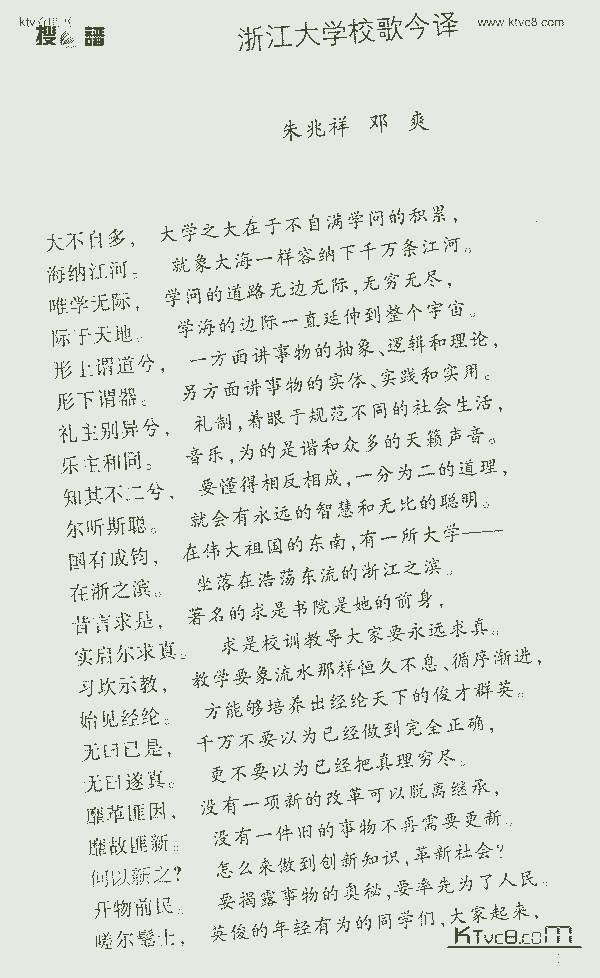 搜谱 www.ktvc8.com
浙江大学校歌今译
朱兆祥 邓 爽
大不自多， 大学之大在于不自满学问的积累，
海纳江河。 就象大海一样容纳下千万条江河。
唯学无际， 学问的道路无边无际,无穷无尽，
际于天地。 学海的边际一直延伸到整个宇宙。
形上谓道兮， 一方面讲事物的抽象、逻辑和理论，
形下谓器。 另方面讲事物的实体、实践和实用。
礼主别异兮， 礼制,着眼于规范不同的社会生活，
乐主和同。 音乐,为的是谐和众多的天籁声音。
知其不二兮， 要懂得相反相成,一分为二的道理，
尔听斯聪。 就会有永远的智慧和无比的聪明。
国有成均， 在伟大祖国的东南,有一所大学——
在浙之滨。 坐落在浩荡东流的浙江之滨。
昔言求是， 著名的求是书院是她的前身，
实启尔求真。 求是校训教导大家要永远求真。
习坎示教， 教学要象流水那样恒久不息、循序渐进，
始见经纶。 方能够培养出经纶天下的俊才群英。
无曰已是， 千万不要以为已经做到完全正确，
无曰遂真。 更不要以为已经把真理穷尽。
靡革匪因， 没有一项新的改革可以脱离继承，
靡故匪新。 没有一件旧的事物不再需要更新。
何以新之? 怎么来做到创新知识,革新社会?
开物前民。 要揭露事物的奥秘,要率先为了人民。
嗟尔髦士， 英俊的年轻有为的同学们,大家起来，
KTvc8.com